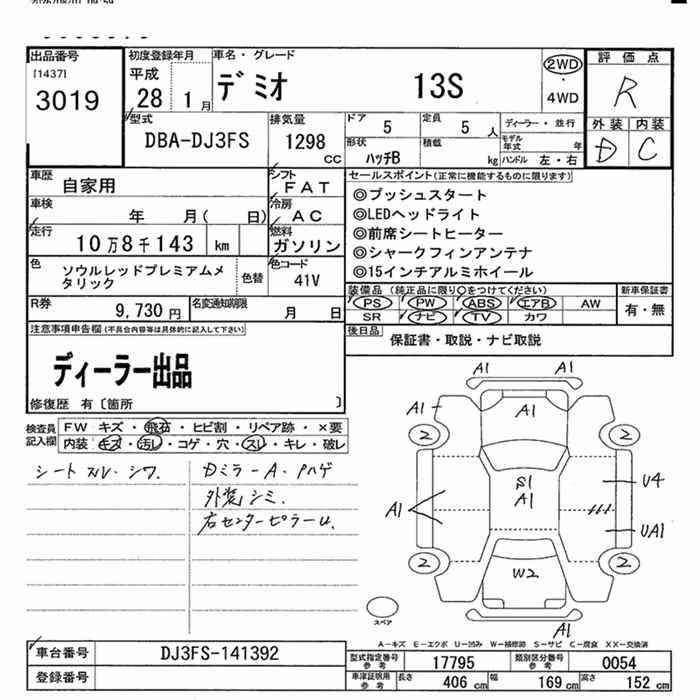 出品番号 初度登録年月 車名・グレード 評価点
[1437] 平成 デミオ 13S 2WD ・ 4WD R
3019 28 1 月
型式 排気量 ドア 定員 ディーラー・並行 外装 内装
DBA-DJ3FS 1298 cc 5 5 人 モデル年式 年 D C
形状 積載 ハッチB kg ハンドル 左・右
車歴 自家用 シフト FAT セールスポイント(正常に機能するものに限ります)
車検 年 月( 日) 冷房 AC ◎プッシュスタート
走行 10万8千143 km 燃料 ガソリン ◎LEDヘッドライト
◎前席シートヒーター
◎シャークフィンアンテナ
◎15インチアルミホイール
色 ソウルレッドプレミアムメタリック 色替 色コード 41V
装備品 (純正品に限り○をつけてください) 新車保証書
R券 9,730 円 名変通知期限 月 日 PS PW ABS エアB AW 有・無
SR ナビ TV カワ
注意事項申告欄(不具合内容等は具体的に記入して下さい) 後日品 保証書・取説・ナビ取説
ディーラー出品
修復歴 有〔箇所 〕
検査員記入欄 FW キズ・飛石・ヒビ割・リペア跡・×要
内装・キズ・汚レ・コゲ・穴・スレ・キレ・破レ
シートスレ・シワ. DミラーA・Pハゲ
外装シミ.
右センターピラーU.
A1 A1
A1 A1
2 2
S1
A1 U4
A1 UA1
2 2
W2
スペア A1
A-キズ E-エクボ U-凹み W-補修跡 S-サビ C-腐食 XX-交換済
車台番号 DJ3FS-141392 型式指定番号参考 17795 類別区分番号参考 0054
登録番号 車庫証明用参考 長さ 406 cm 幅 169 cm 高さ 152 cm